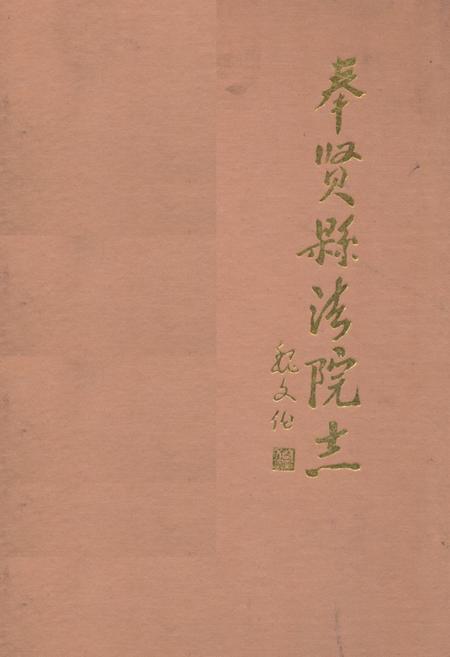 奉贤縣法院志
魏文伯